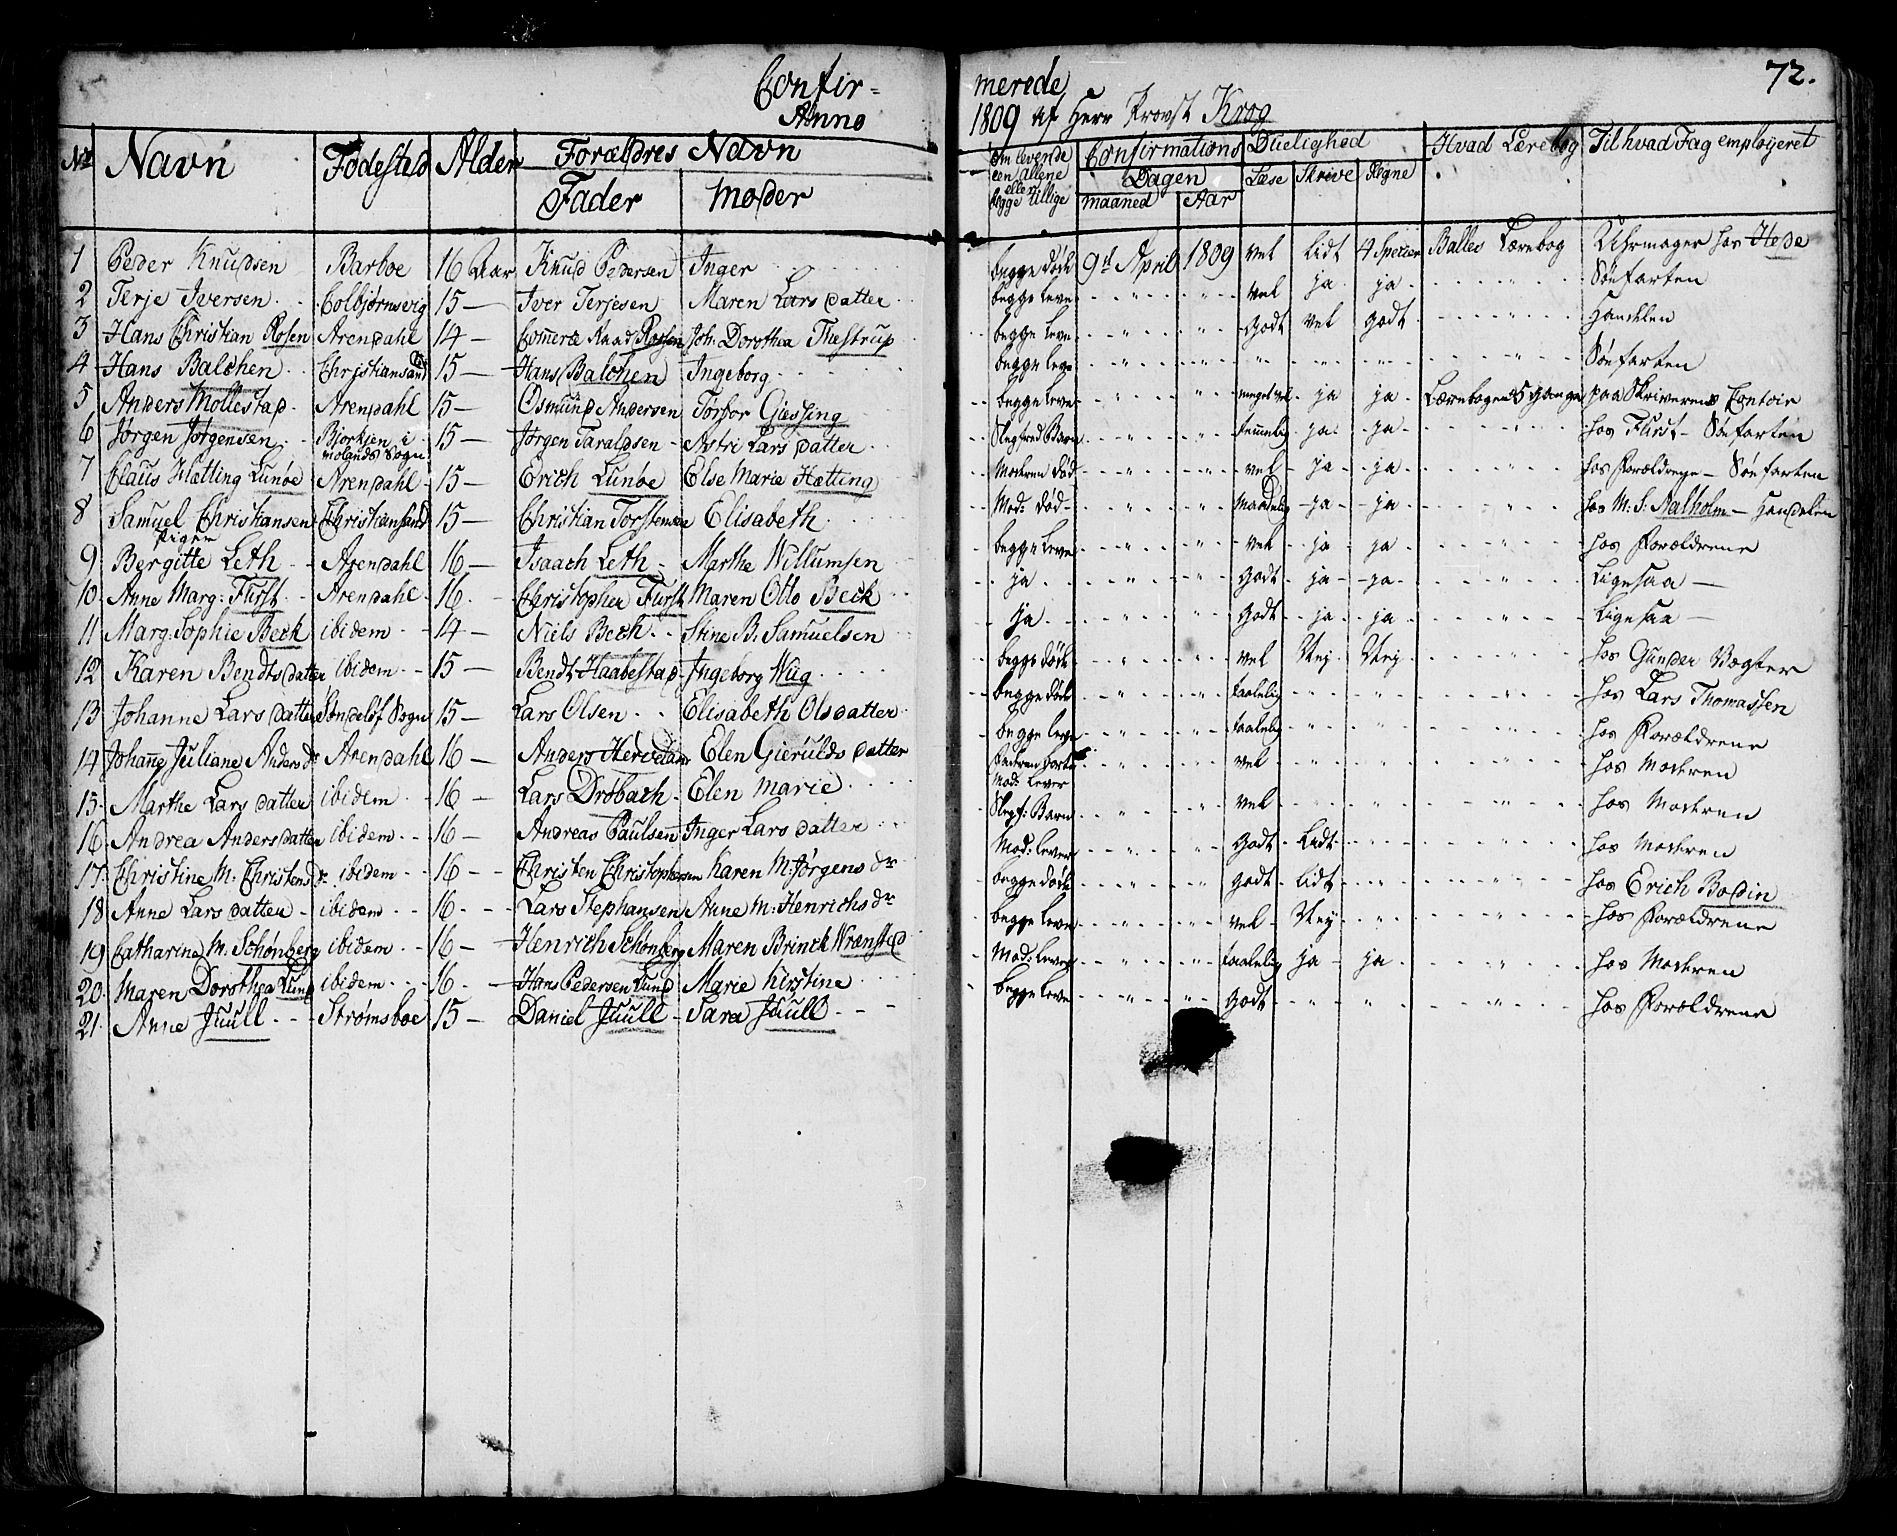 Confir=
Anno
merede
1809 af Herr Provst Krog
72.
No Navn Fødestad Alder Forældres Navn
Fader Moder
Om levende een allene eller begge tillige Confirmations Dagen maaned Aar Duelighed Læse Skrive Regne Hvad Lærebog Til hvad Fag employeret
1 Peder Knudsen Barboe 16 Aar Knud Pedersen Inger begge døde 9d April 1809 vel lidt 4 Specier Balles Lærebog Uhrmager hos Hede
2 Terje Iversen Colbjørnsvig 15 — Iver Terjesen Maren Lars datter begge leve " " vel ja ja " Søefarten
3 Hans Christian Rosen Arendahl 14 — Comeræ Raad Rosen Joh. Dorothea Thestrup begge leve " " godt vel godt " Handelen
4 Hans Balchen Christiansand 15 — Hans Balchen Ingeborg begge leve " " " " " " Søefarten
5 Anders Mollestad Arendahl 15 — Osmund Andersen Torbor Giessing begge leve " " meget vel ja ja Lærebogen 5 gange paa Skriverens Contoir
6 Jørgen Jørgensen Bjorkjen i molands Sogn 15 — Jørgen Taraldsen Astri Lars datter Slegfred Barn " " temmelig ja ja " hos Fürst - Søefarten
7 Claus Hætting Lunøe Arendahl 15 — Erich Lunøe Else Marie Hætting Moderen død " " vel ja ja " hos Forældrene - Søefarten
8 Samuel Christiansen Christiansand 15 — Christian Torstensen Elisabeth Mod: død " " maadelig ja ja " hos M. S. Aalholm - Handelen
Piger
9 Bergitte Leth Arendahl 16 — Isaach Leth Marthe Willumsen begge leve " " vel ja ja " hos Forældrene
10 Anne Marg: Fürst Arendahl 16 Christopher Fürst Maren Otto Beck ja " " godt ja ja " Ligesaa —
11 Marg: Sophie Beck ibidem 14 — Niels Beck Stine B. Samuelsen ja " " godt ja ja " Ligesaa —
12 Karen Bendtsdatter ibidem 15 — Bendt Haabestad Ingeborg Wiig begge døde " " vel Nej Nej " hos Gunder Vegter
13 Johanne Lars datter Søndelef Sogn 15 — Lars Olsen Elisabeth Olsdatter begge døde " " taalelig " " " hos Lars Thomassen
14 Johane Juliane Anders dr Arendahl 16 — Anders Gierulds datter begge leve " " taalelig " " " hos Forældrene
15 Marthe Lars datter ibidem 16 — Lars Drøbach Elen Marie Faderen borte Mod: lever " " vel " " " hos Moderen
16 Andrea Andersdatter ibidem 16 — Andreas Paulsen Inger Lars datter Slegf: Barn " " vel " " " hos Moderen
17 Christine M. Christens dr ibidem 16 — Christen Christophersen Karen M: Jørgens dr Mod: lever " " godt Lidt " " hos Moderen
18 Anne Lars datter ibidem 16 Lars Stephansen Anne M: Henrichs dr begge døde " " godt lidt " " hos Erich Boldin
19 Catharina M. Schønberg ibidem 16 — Henrich Schønberg Maren Brinck Wrænsted begge leve " " vel Nej " " hos Forældrene
20 Maren Dorothea Lund ibidem 16 Hans Pedersen Lund Marie Kirstine Mod: lever " " taalelig ja ja " hos Moderen
21 Anne Juull Strømsboe 15 — Daniel Juull Sara Juull begge leve " " godt " " " hos Forældrene